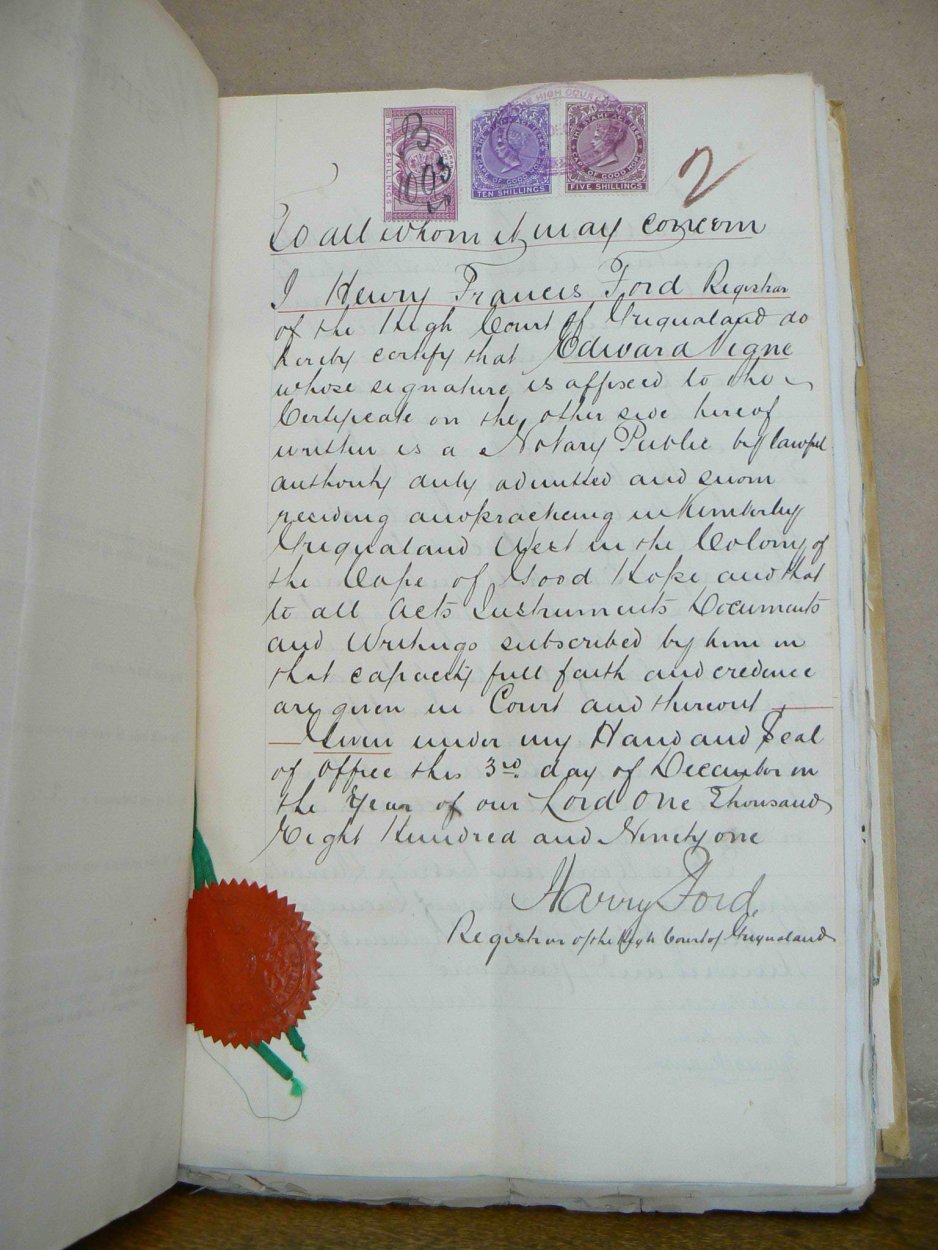 TWEE SHILLINGS
B
1003
THE HIGH COURT
THE STAMP ACT 1884
CAPE OF GOOD HOPE
TEN SHILLINGS
THE STAMP ACT 1884
CAPE OF GOOD HOPE
FIVE SHILLINGS
2
To all whom it may concern
I Henry Francis Ford Registrar
of the High Court of Griqualand do
hereby certify that Edward Vigne
whose signature is affixed to the
Certificate on the other side hereof
written is a Notary Public by lawful
authority duly admitted and sworn
residing and practicing in Kimberley
Griqualand West in the Colony of
the Cape of Good Hope and that
to all Acts Instruments Documents
and Writings subscribed by him in
that capacity full faith and credence
are given in Court and thereout
Given under my Hand and Seal
of Office this 3rd day of December in
the Year of our Lord One Thousand
Eight Hundred and Ninety one
Harry Ford.
Registrar of the High Court of Griqualand